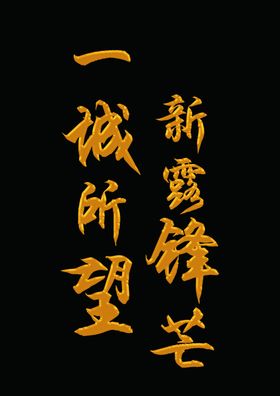 新露锋芒
一诚所望